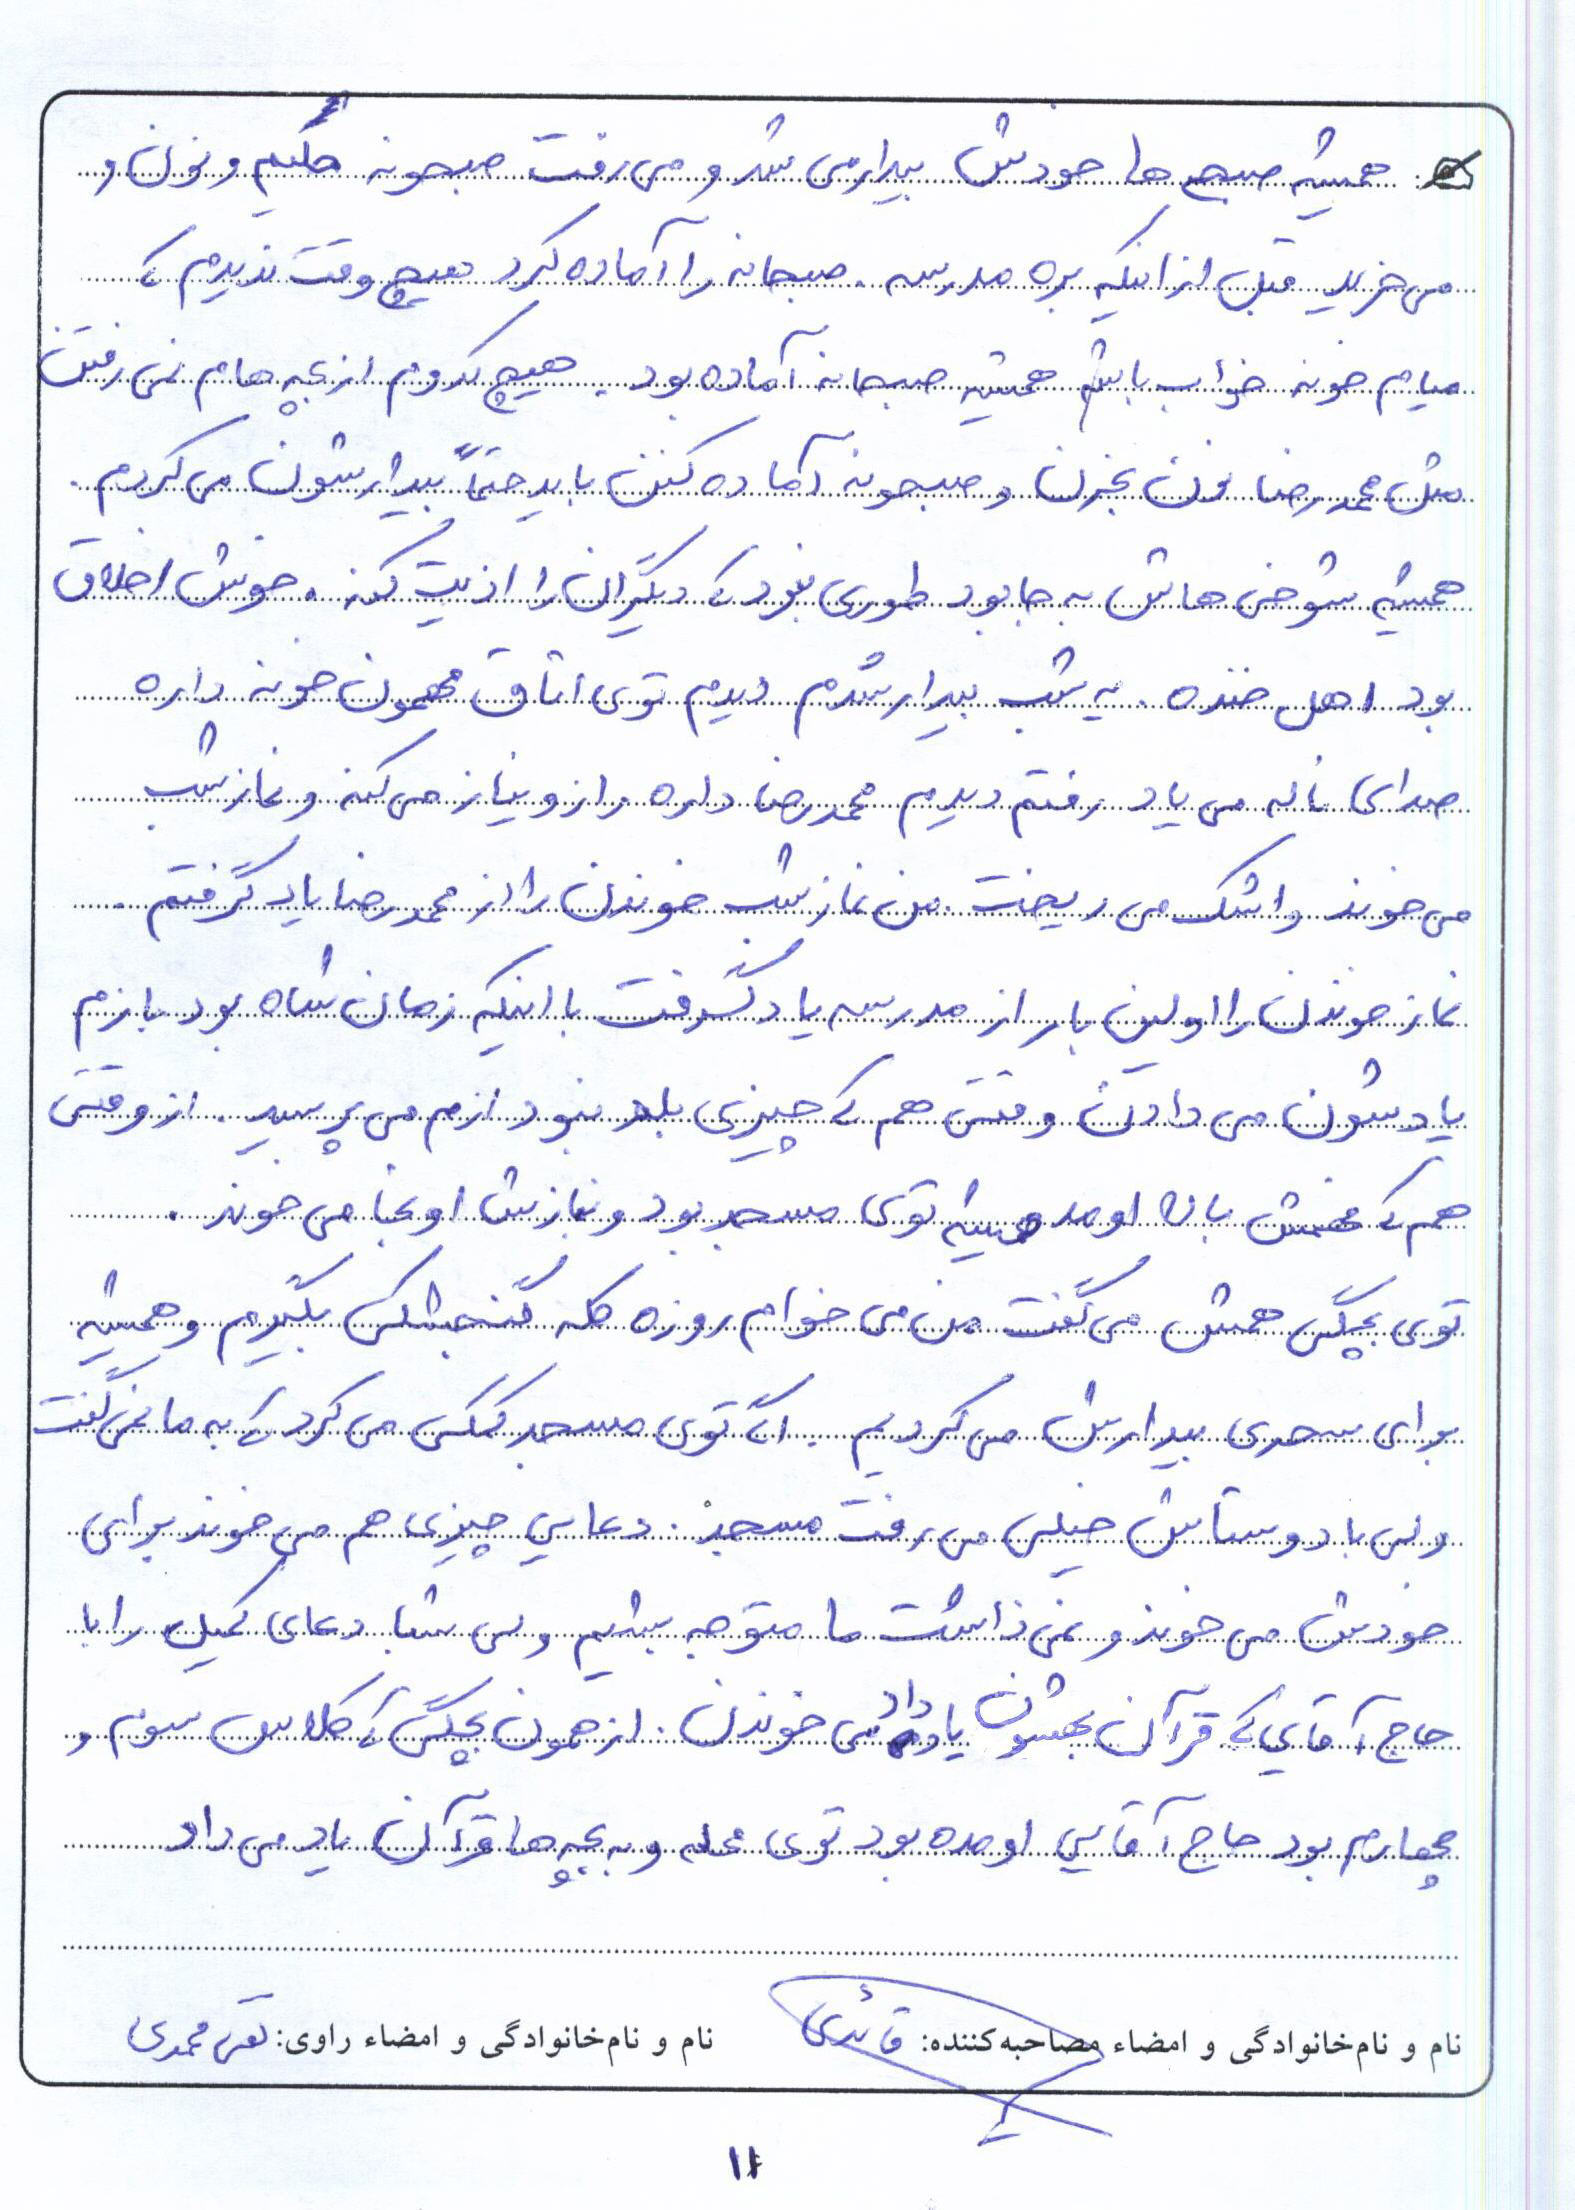 همیشه صبح ها خودش بیدار می شد و می رفت صبحونه حلیم و نون و
می خرید قبل از اینکه بره مدرسه . صبحانه را آماده کرد هیچ وقت ندیدم که
میام خونه خواب باشم همیشه صبحانه آماده بود . هیچ کدوم از بچه هام نمی رفتن
مثل محمدرضا نون بخرن و صبحونه آماده کنن باید حتماً بیدارشون می کردم .
همیشه شوخی هاش به جا بود طوری نبود که دیگران را اذیت کنه . خوش اخلاق
بود اهل خنده . یه شب بیدار شدم دیدم توی اتاق مهمون خونه داره
صدای ناله می یاد رفتم دیدم محمدرضا داره راز و نیاز می کنه و نماز شب
می خوند و اشک می ریخت . من نماز شب خوندن را از محمدرضا یاد گرفتم .
نماز خوندن را اولین بار از مدرسه یاد گرفت با اینکه زمان شاه بود بازم
یادشون می دادن وقتی هم که چیزی بلد نبود ازم می پرسید . از وقتی
هم که فهمش بالا اومد همیشه توی مسجد بود و نمازش اونجا می خوند .
توی بچگی همش می گفت من می خوام روزه کله گنجشکی بگیرم و همیشه
برای سحری بیدارش می کردیم . اگه توی مسجد کمکی می کرد که به ما نمی گفت
ولی با دوستاش خیلی می رفت مسجد . دعایی چیزی هم می خوند برای
خودش می خوند و نمی ذاشت ما متوجه بشیم ولی شبا دعای کمیل را با
حاج آقایی که قرآن بهشون یاد داد می خوندن . از همون بچگی که کلاس سوم و
چهارم بود حاج آقایی اومده بود توی محله و به بچه ها قرآن یاد می داد
نام و نام‌خانوادگی و امضاء مصاحبه‌کننده: قائدی نام و نام‌خانوادگی و امضاء راوی: تقی محمدی
۱۱